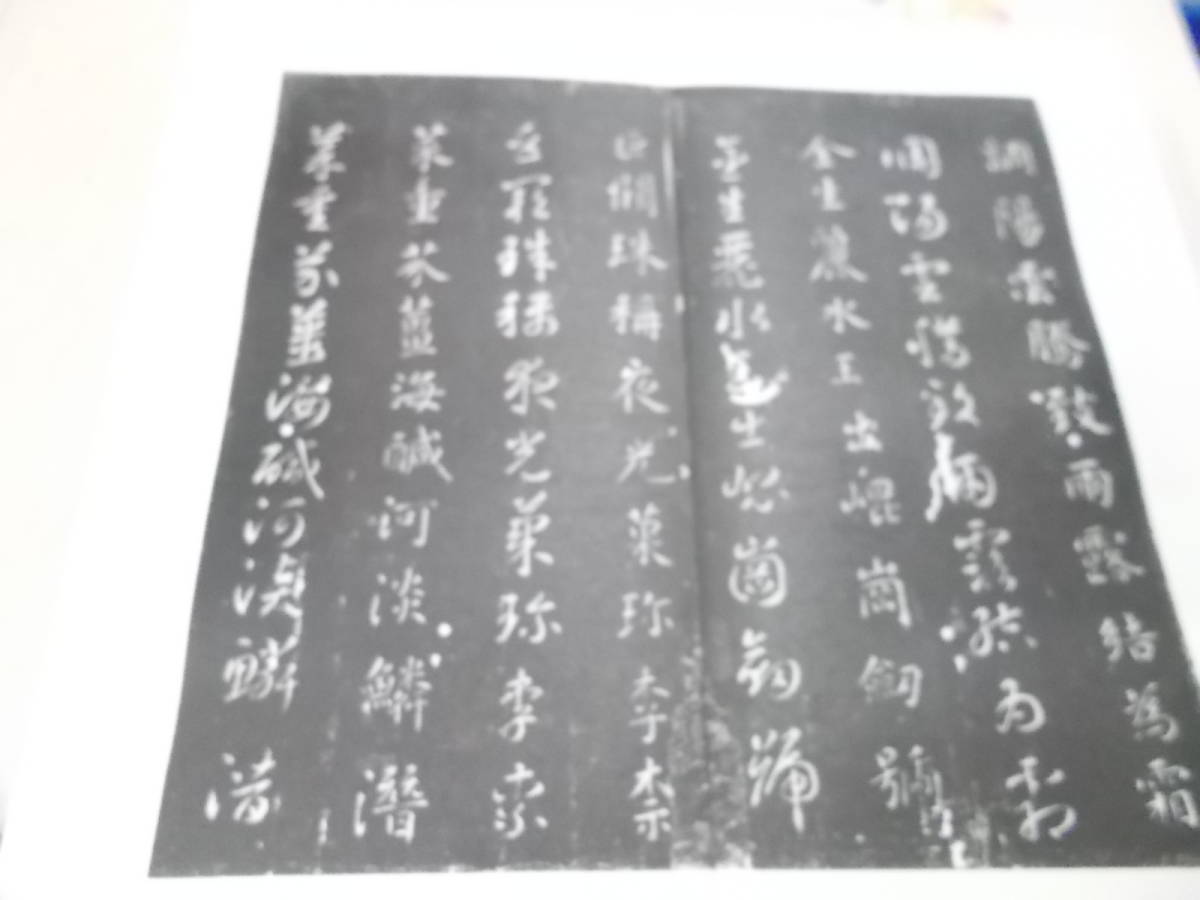 調陽雲騰致雨露結為霜
調陽雲騰致雨露結為霜
金生麗水玉出崐崗劒號
金生麗水玉出崐崗劒號
巨闕珠稱夜光菓珍李柰
巨闕珠稱夜光菓珍李柰
菜重芥薑海醎河淡鱗潛
菜重芥薑海醎河淡鱗潛